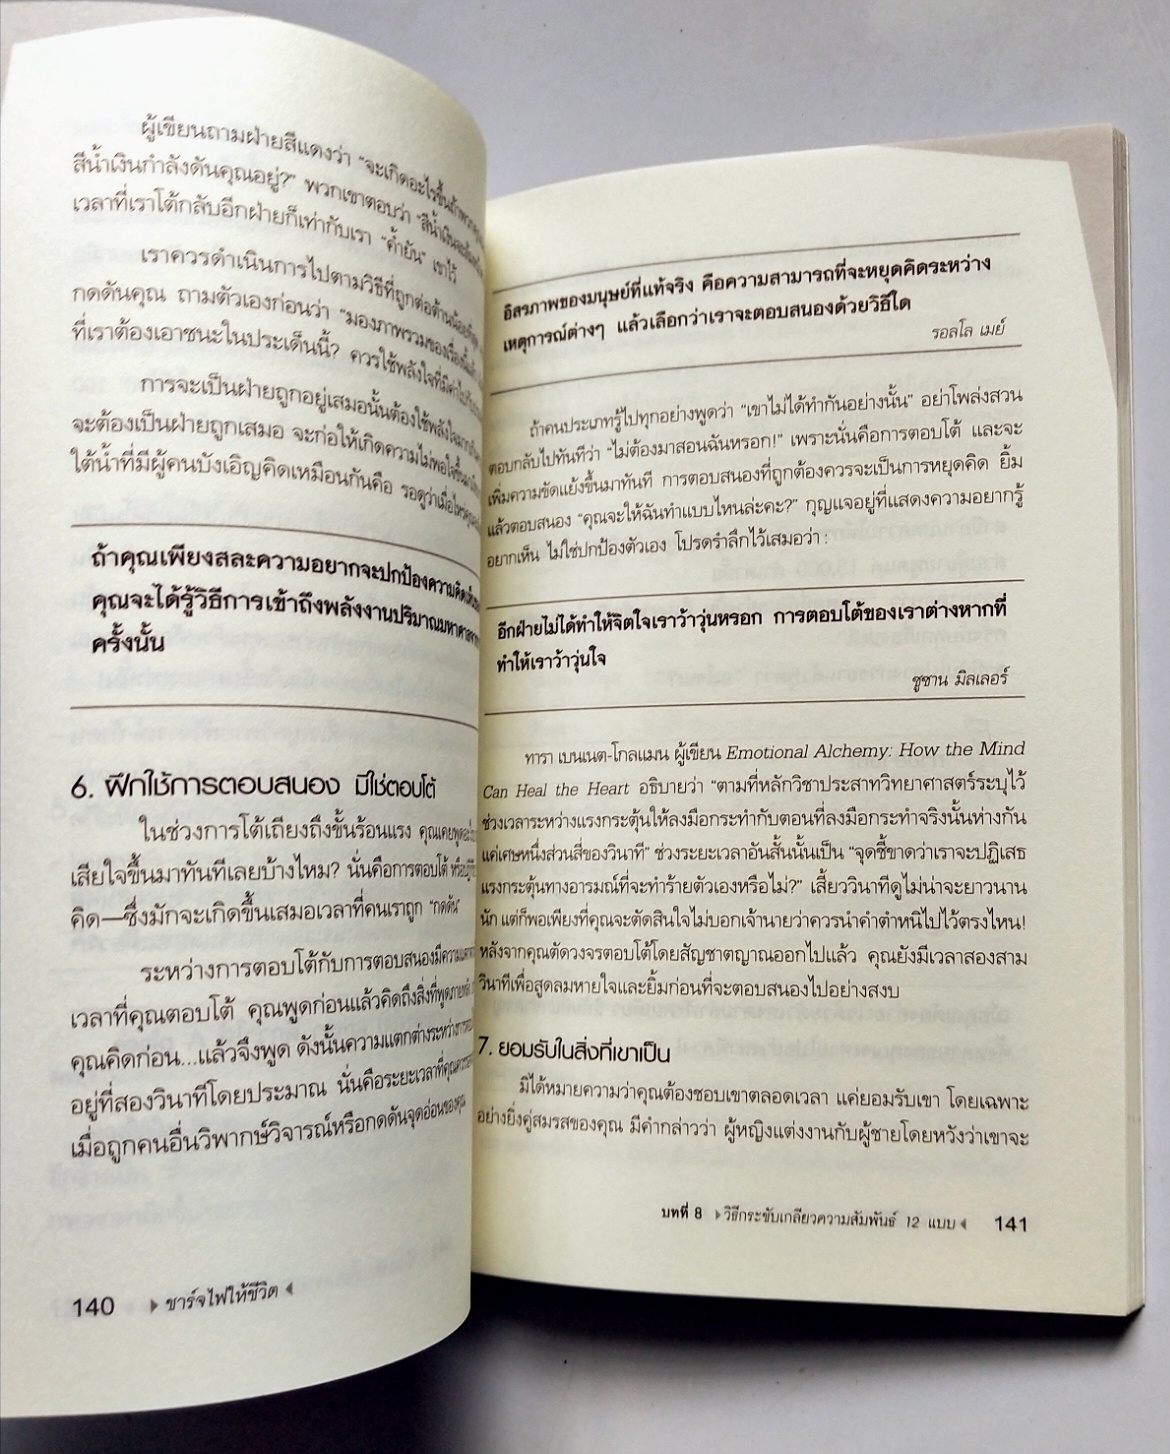 ผู้เขียนถามฝ่ายสีแดงว่า “จะเกิดอะไรขึ้นถ้าพวกคุณ
สีน้ำเงินกำลังดันคุณอยู่?” พวกเขาตอบว่า “สีน้ำเงิน
เวลาที่เราโต้กลับอีกฝ่ายก็เท่ากับเรา “ค้ำยัน” เขาไว้
เราควรดำเนินการไปตามวิธีที่ถูกต่อต้านน้อยที่สุด
กดดันคุณ ถามตัวเองก่อนว่า “มองภาพรวมของเรื่องนี้แล้ว
ที่เราต้องเอาชนะในประเด็นนี้? ควรใช้พลังใจที่มีค่า
การจะเป็นฝ่ายถูกอยู่เสมอนั้นต้องใช้พลังใจมาก
จะต้องเป็นฝ่ายถูกเสมอ จะก่อให้เกิดความไม่พอใจขึ้น
ใต้น้ำที่มีผู้คนบังเอิญคิดเหมือนกันคือ รอดูว่าเมื่อไหร่
ถ้าคุณเพียงสละความอยากจะปกป้องความคิด
คุณจะได้รู้วิธีการเข้าถึงพลังงานปริมาณมหาศาล
ครั้งนั้น
6. ฝึกใช้การตอบสนอง มิใช่ตอบโต้
ในช่วงการโต้เถียงถึงขั้นร้อนแรง คุณเคยพูด
เสียใจขึ้นมาทันทีเลยบ้างไหม? นั่นคือการตอบโต้
คิด—ซึ่งมักจะเกิดขึ้นเสมอเวลาที่คนเราถูก “กดดัน”
ระหว่างการตอบโต้กับการตอบสนองมีความแตกต่าง
เวลาที่คุณตอบโต้ คุณพูดก่อนแล้วคิดถึงสิ่งที่พูดภายหลัง
คุณคิดก่อน...แล้วจึงพูด ดังนั้นความแตกต่างระหว่างการ
อยู่ที่สองวินาทีโดยประมาณ นั่นคือระยะเวลาที่คุณควร
เมื่อถูกคนอื่นวิพากษ์วิจารณ์หรือกดดันจุดอ่อนของคุณ
140 ▶ ชาร์จไฟให้ชีวิต ◀
อิสรภาพของมนุษย์ที่แท้จริง คือความสามารถที่จะหยุดคิดระหว่าง
เหตุการณ์ต่างๆ แล้วเลือกว่าเราจะตอบสนองด้วยวิธีใด
รอลโล เมย์
ถ้าคนประเภทรู้ไปทุกอย่างพูดว่า “เขาไม่ได้ทำกันอย่างนั้น” อย่าโพล่งสวน
ตอบกลับไปทันทีว่า “ไม่ต้องมาสอนฉันหรอก!” เพราะนั่นคือการตอบโต้ และจะ
เพิ่มความขัดแย้งขึ้นมาทันที การตอบสนองที่ถูกต้องควรจะเป็นการหยุดคิด ยิ้ม
แล้วตอบสนอง “คุณจะให้ฉันทำแบบไหนล่ะคะ?” กุญแจอยู่ที่แสดงความอยากรู้
อยากเห็น ไม่ใช่ปกป้องตัวเอง โปรดรำลึกไว้เสมอว่า :
อีกฝ่ายไม่ได้ทำให้จิตใจเราว้าวุ่นหรอก การตอบโต้ของเราต่างหากที่
ทำให้เราว้าวุ่นใจ
ซูซาน มิลเลอร์
ทารา เบนเนต-โกลแมน ผู้เขียน Emotional Alchemy: How the Mind
Can Heal the Heart อธิบายว่า “ตามที่หลักวิชาประสาทวิทยาศาสตร์ระบุไว้
ช่วงเวลาระหว่างแรงกระตุ้นให้ลงมือกระทำกับตอนที่ลงมือกระทำจริงนั้นห่างกัน
แค่เศษหนึ่งส่วนสี่ของวินาที” ช่วงระยะเวลาอันสั้นนั้นเป็น “จุดชี้ขาดว่าเราจะปฏิเสธ
แรงกระตุ้นทางอารมณ์ที่จะทำร้ายตัวเองหรือไม่?” เสี้ยววินาทีดูไม่น่าจะยาวนาน
นัก แต่ก็พอเพียงที่คุณจะตัดสินใจไม่บอกเจ้านายว่าควรนำคำตำหนิไปไว้ตรงไหน!
หลังจากคุณตัดวงจรตอบโต้โดยสัญชาตญาณออกไปแล้ว คุณยังมีเวลาสองสาม
วินาทีเพื่อสูดลมหายใจและยิ้มก่อนที่จะตอบสนองไปอย่างสงบ
7. ยอมรับในสิ่งที่เขาเป็น
มิได้หมายความว่าคุณต้องชอบเขาตลอดเวลา แค่ยอมรับเขา โดยเฉพาะ
อย่างยิ่งคู่สมรสของคุณ มีคำกล่าวว่า ผู้หญิงแต่งงานกับผู้ชายโดยหวังว่าเขาจะ
บทที่ 8 ▶ วิธีกระชับเกลียวความสัมพันธ์ 12 แบบ ◀ 141